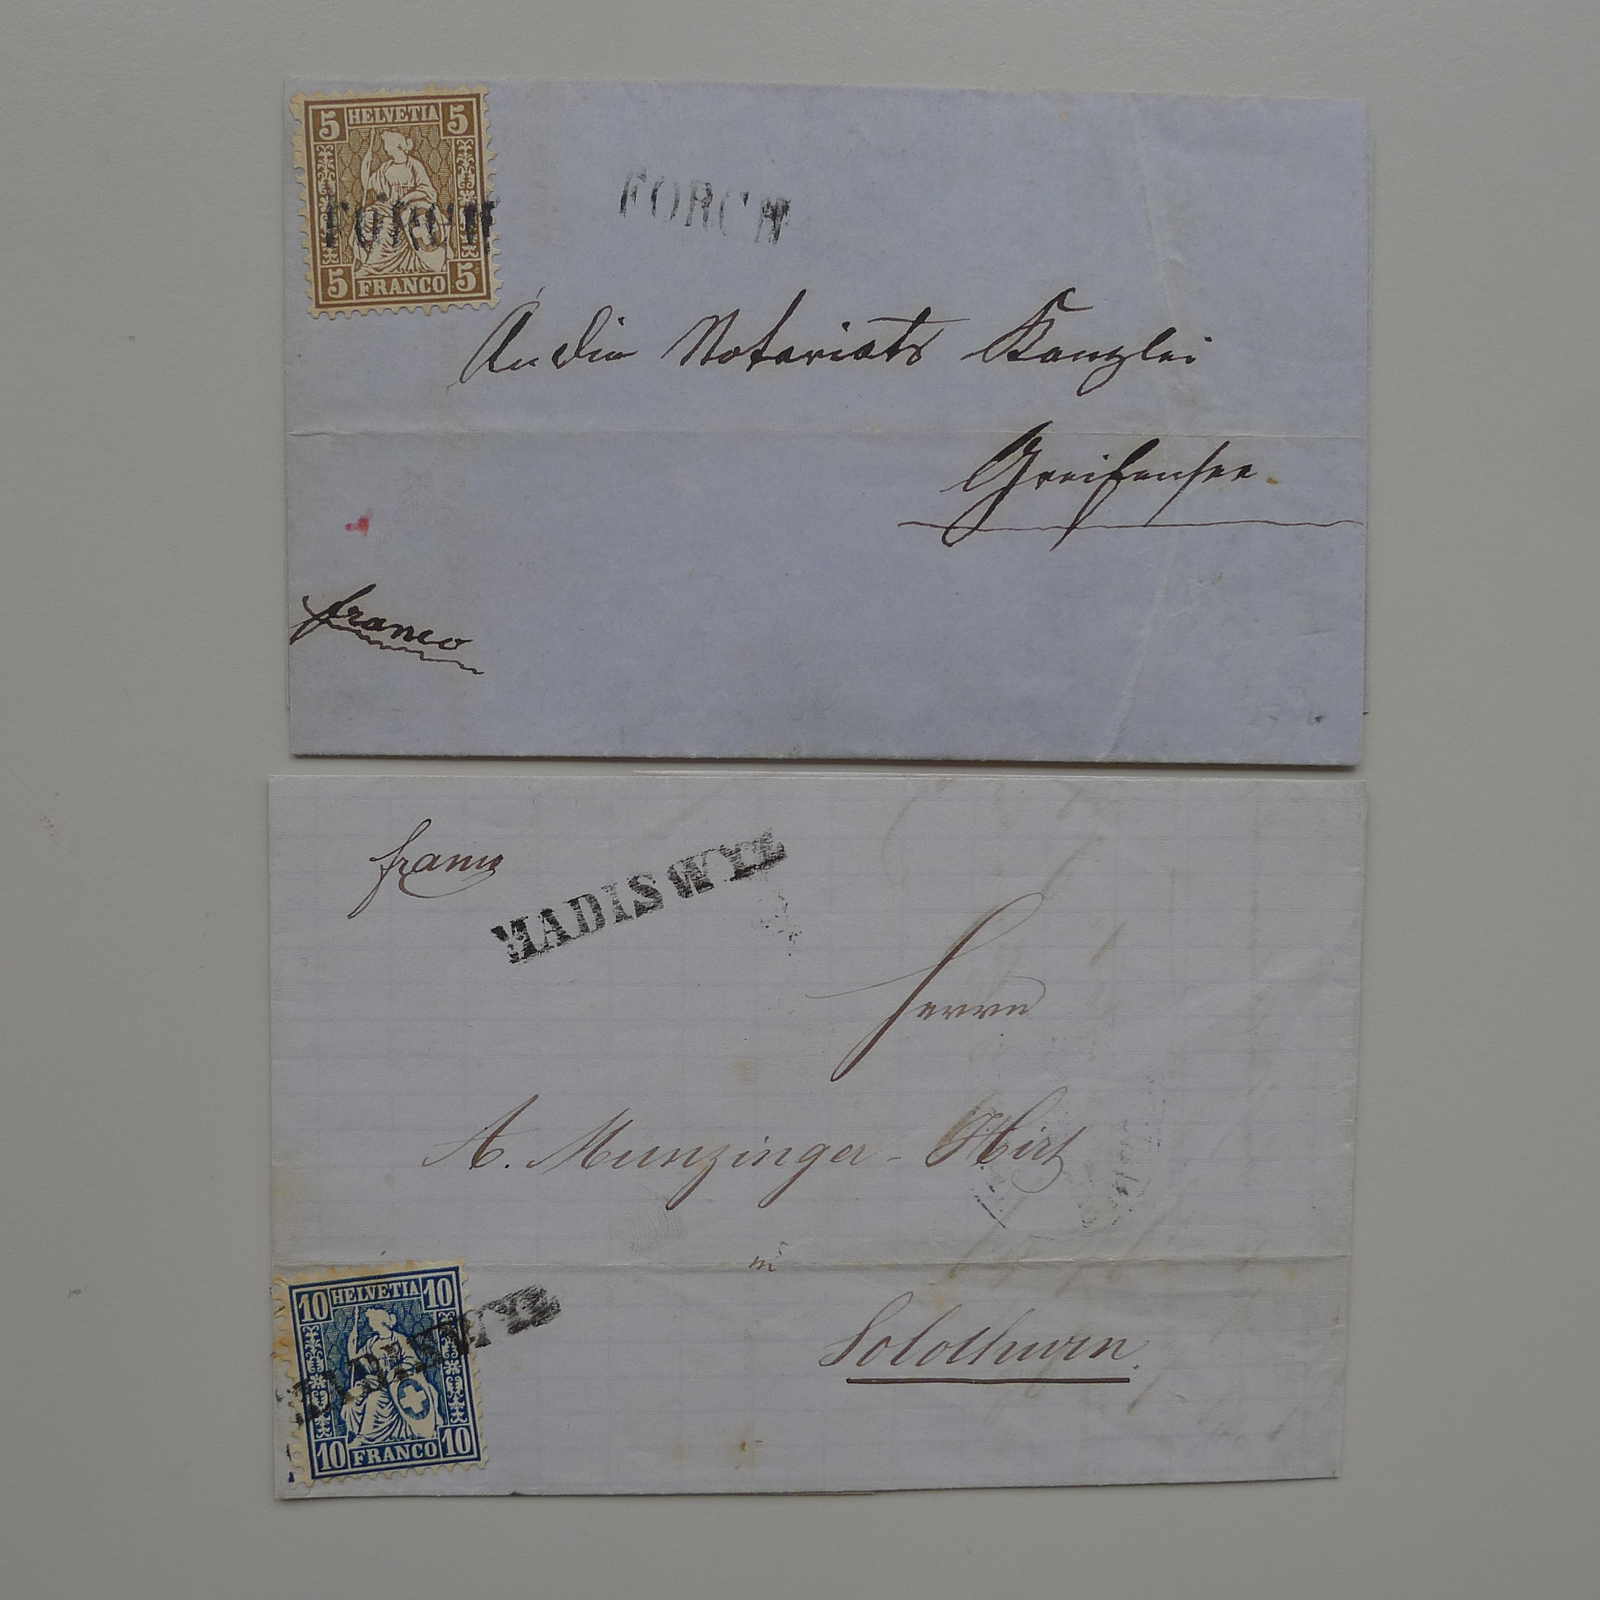 5 HELVETIA 5
FORCH
FORCH
5 FRANCO 5
An die Notariats Kanzlei
Greifensee.
franco
franco
MADISWYL
Herrn
A. Munzinger-Hirt
in
10 HELVETIA 10
MADISWYL
Solothurn.
10 FRANCO 10